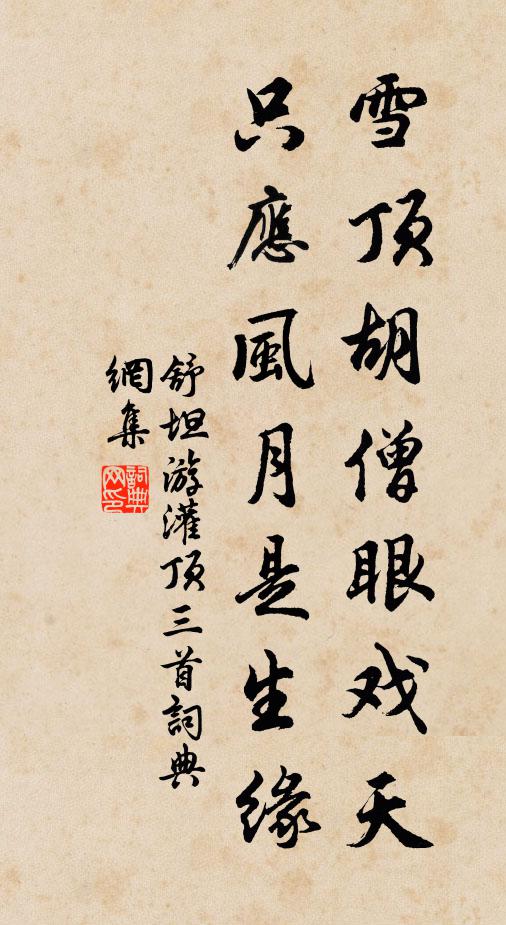 雪顶胡僧眼戏天
只應風月是生緣
舒坦游灌顶三首詞典
網集
詞典
网印